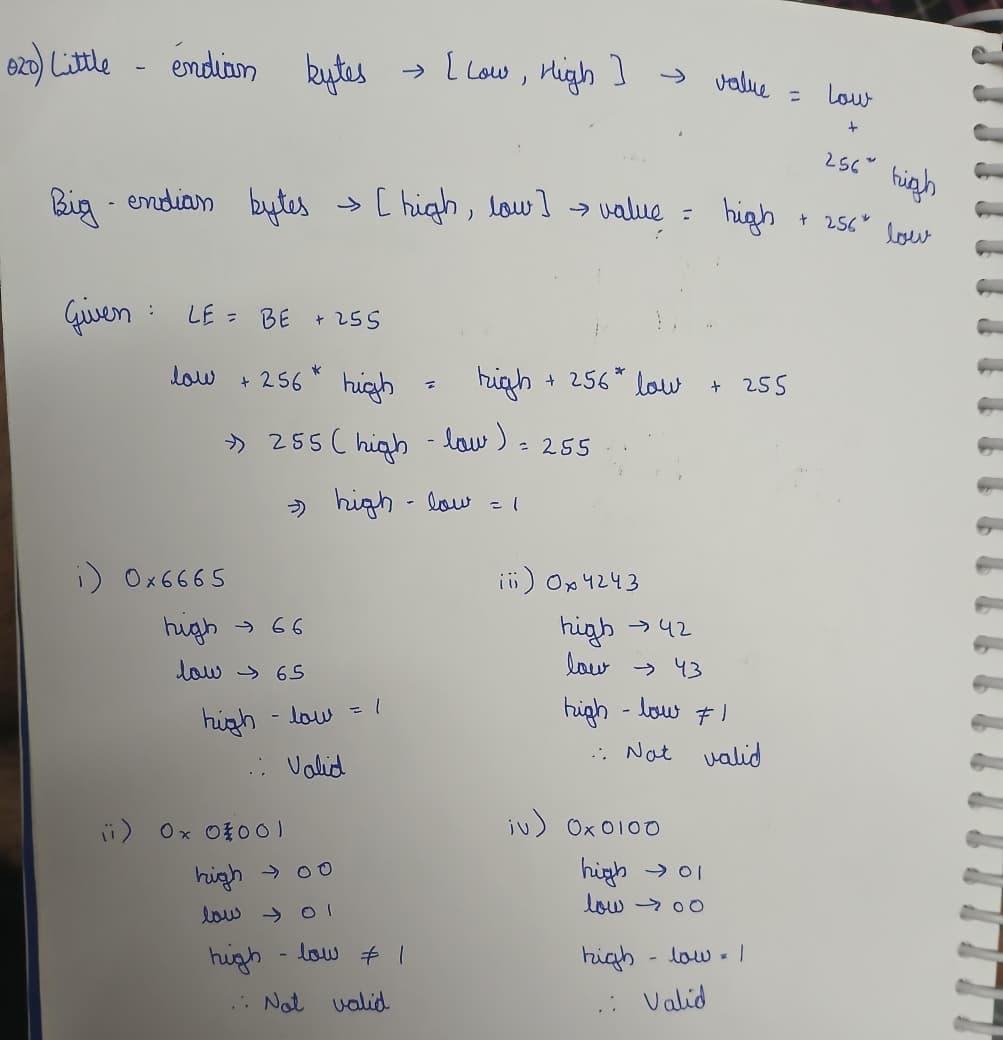 Q20) Little - endian bytes → [Low, High] → value = low
+
256* high
Big - endian bytes → [high, low] → value = high + 256* low
Given : LE = BE + 255
low + 256* high = high + 256* low + 255
⇒ 255 (high - low) = 255
⇒ high - low = 1
i) 0x6665
high → 66
low → 65
high - low = 1
∴ Valid
ii) 0x 0001
high → 00
low → 01
high - low ≠ 1
∴ Not valid
iii) 0x4243
high → 42
low → 43
high - low ≠ 1
∴ Not valid
iv) 0x0100
high → 01
low → 00
high - low = 1
∴ Valid